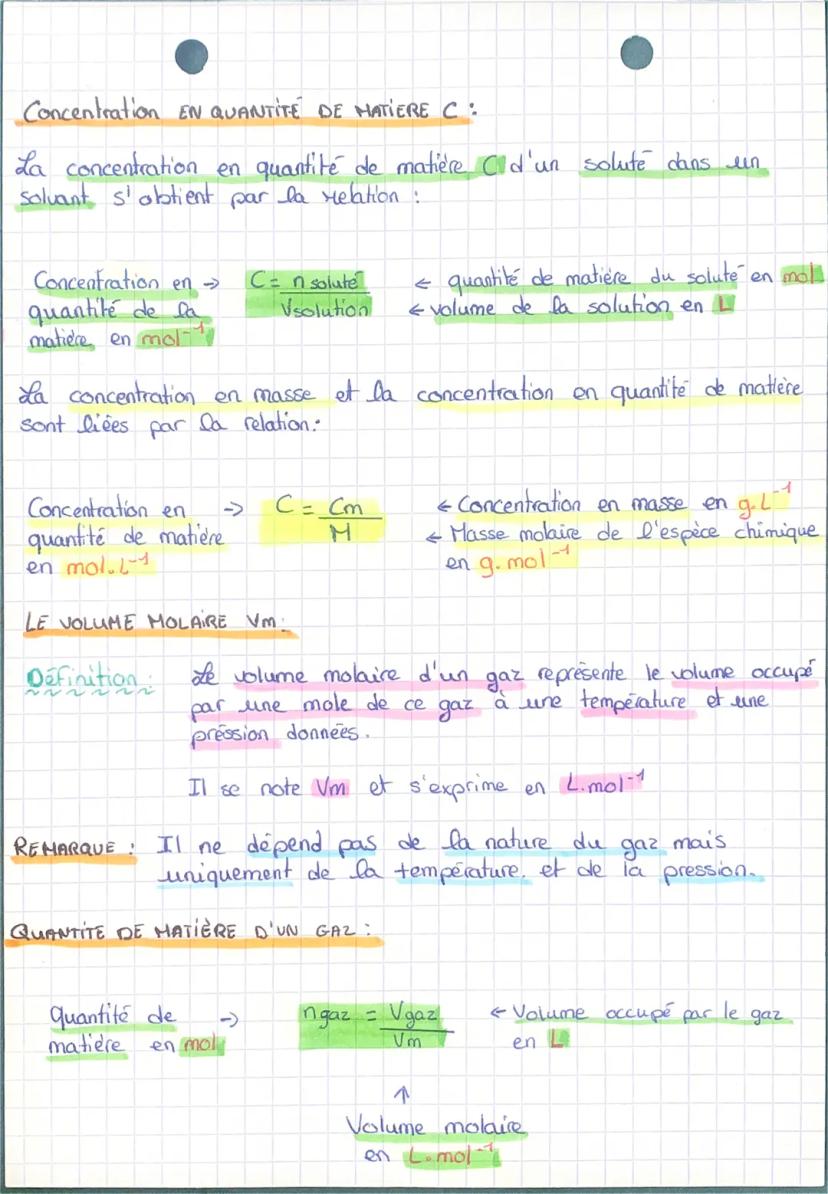 Concentration EN QUANTITÉ DE MATIERE C :
La concentration en quantité de matière C d'un soluté dans un
solvant s'obtient par la relation :
Concentration en → C = n soluté ← quantité de matière du soluté en mol
quantité de la Vsolution ← volume de la solution en L
matière en mol⁻¹
La concentration en masse et la concentration en quantité de matière
sont liées par la relation :
Concentration en → C = Cm ← Concentration en masse en g.L⁻¹
quantité de matière M ← Masse molaire de l'espèce chimique
en mol.L⁻¹ en g.mol⁻¹
LE VOLUME MOLAIRE Vm :
Définition : Le volume molaire d'un gaz représente le volume occupé
par une mole de ce gaz à une température et une
préssion données.
Il se note Vm et s'exprime en L.mol⁻¹
REMARQUE : Il ne dépend pas de la nature du gaz mais
uniquement de la température. et de la pression.
QUANTITE DE MATIÈRE D'UN GAZ :
quantité de → n gaz = Vgaz ← Volume occupé par le gaz
matière en mol Vm en L
↑
Volume molaire
en L.mol⁻¹